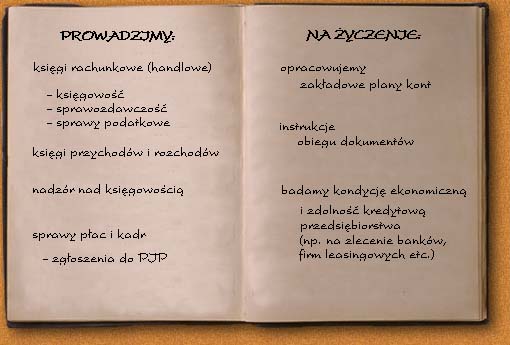 PROWADZIMY:
księgi rachunkowe (handlowe)
- księgowość
- sprawozdawczość
- sprawy podatkowe
księgi przychodów i rozchodów
nadzór nad księgowością
sprawy płac i kadr
- zgłoszenia do PIP
NA ŻYCZENIE:
opracowujemy
zakładowe plany kont
instrukcje
obiegu dokumentów
badamy kondycję ekonomiczną
i zdolność kredytową
przedsiębiorstwa
(np. na zlecenie banków,
firm leasingowych etc.)